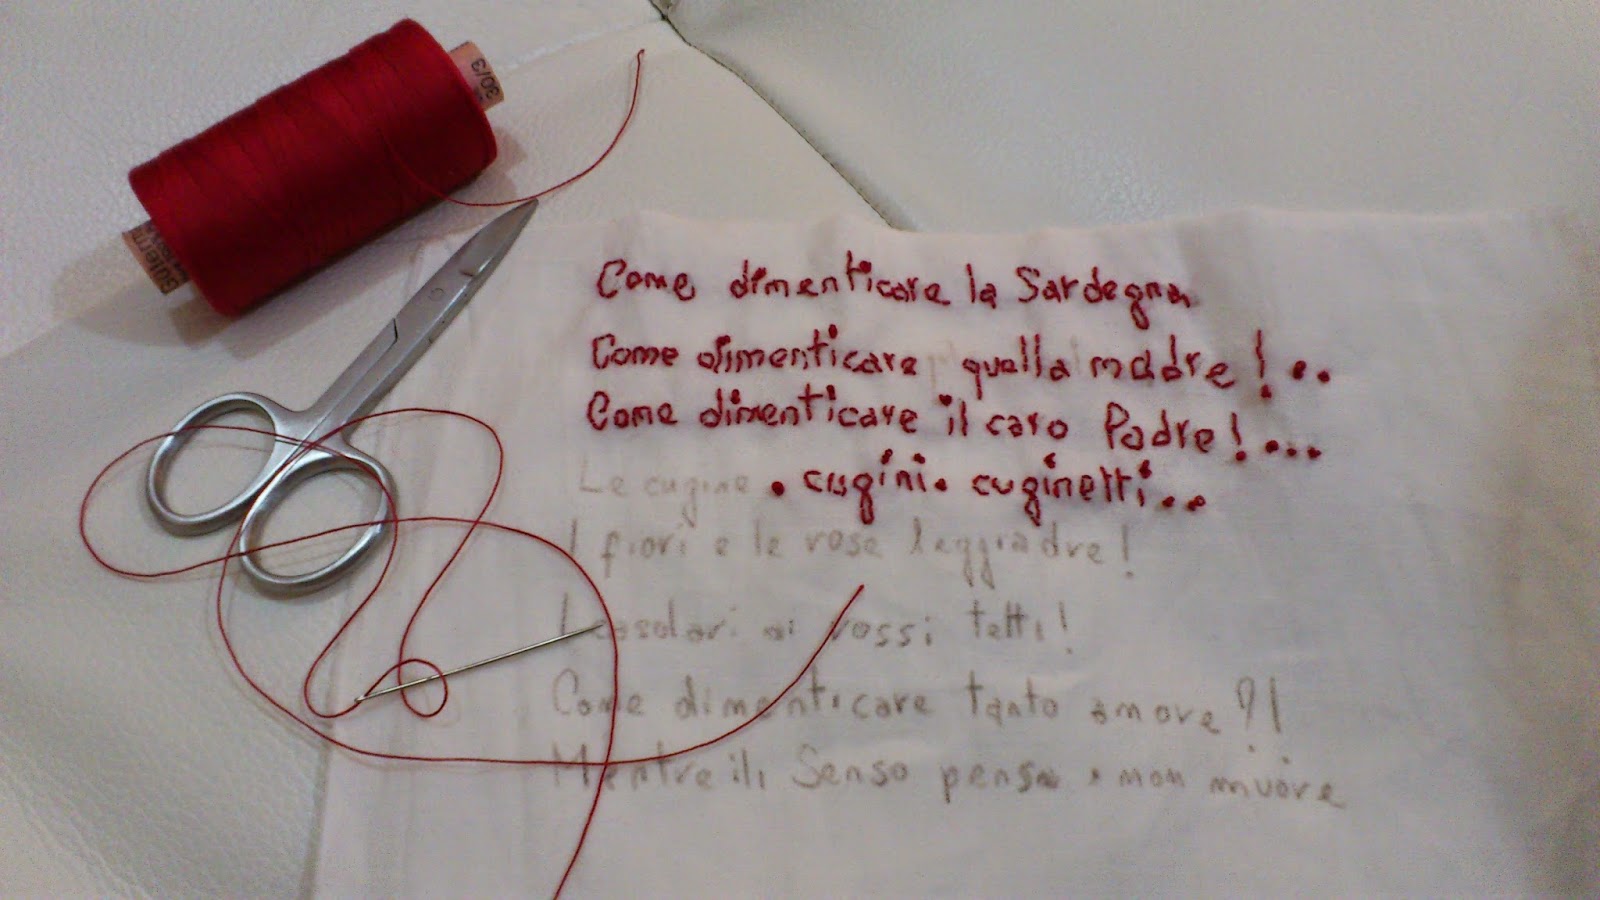 30/3
Come dimenticare la Sardegna
Come dimenticare quella madre!..
Come dimenticare il caro Padre!....
Le cugine . cugini. cuginetti...
I fiori e le rose leggiadre!
I casolari ai rossi tetti!
Come dimenticare tanto amore?!
Mentre il Senso pensa e non muore